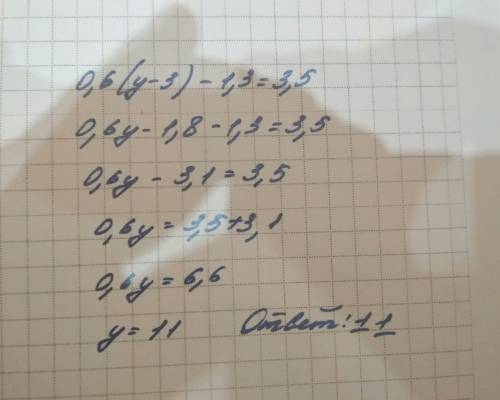 0,6(y-3)-1,3=3,5
0,6y-1,8-1,3=3,5
0,6y-3,1=3,5
0,6y=3,5+3,1
0,6y=6,6
y=11 Ответ: 11